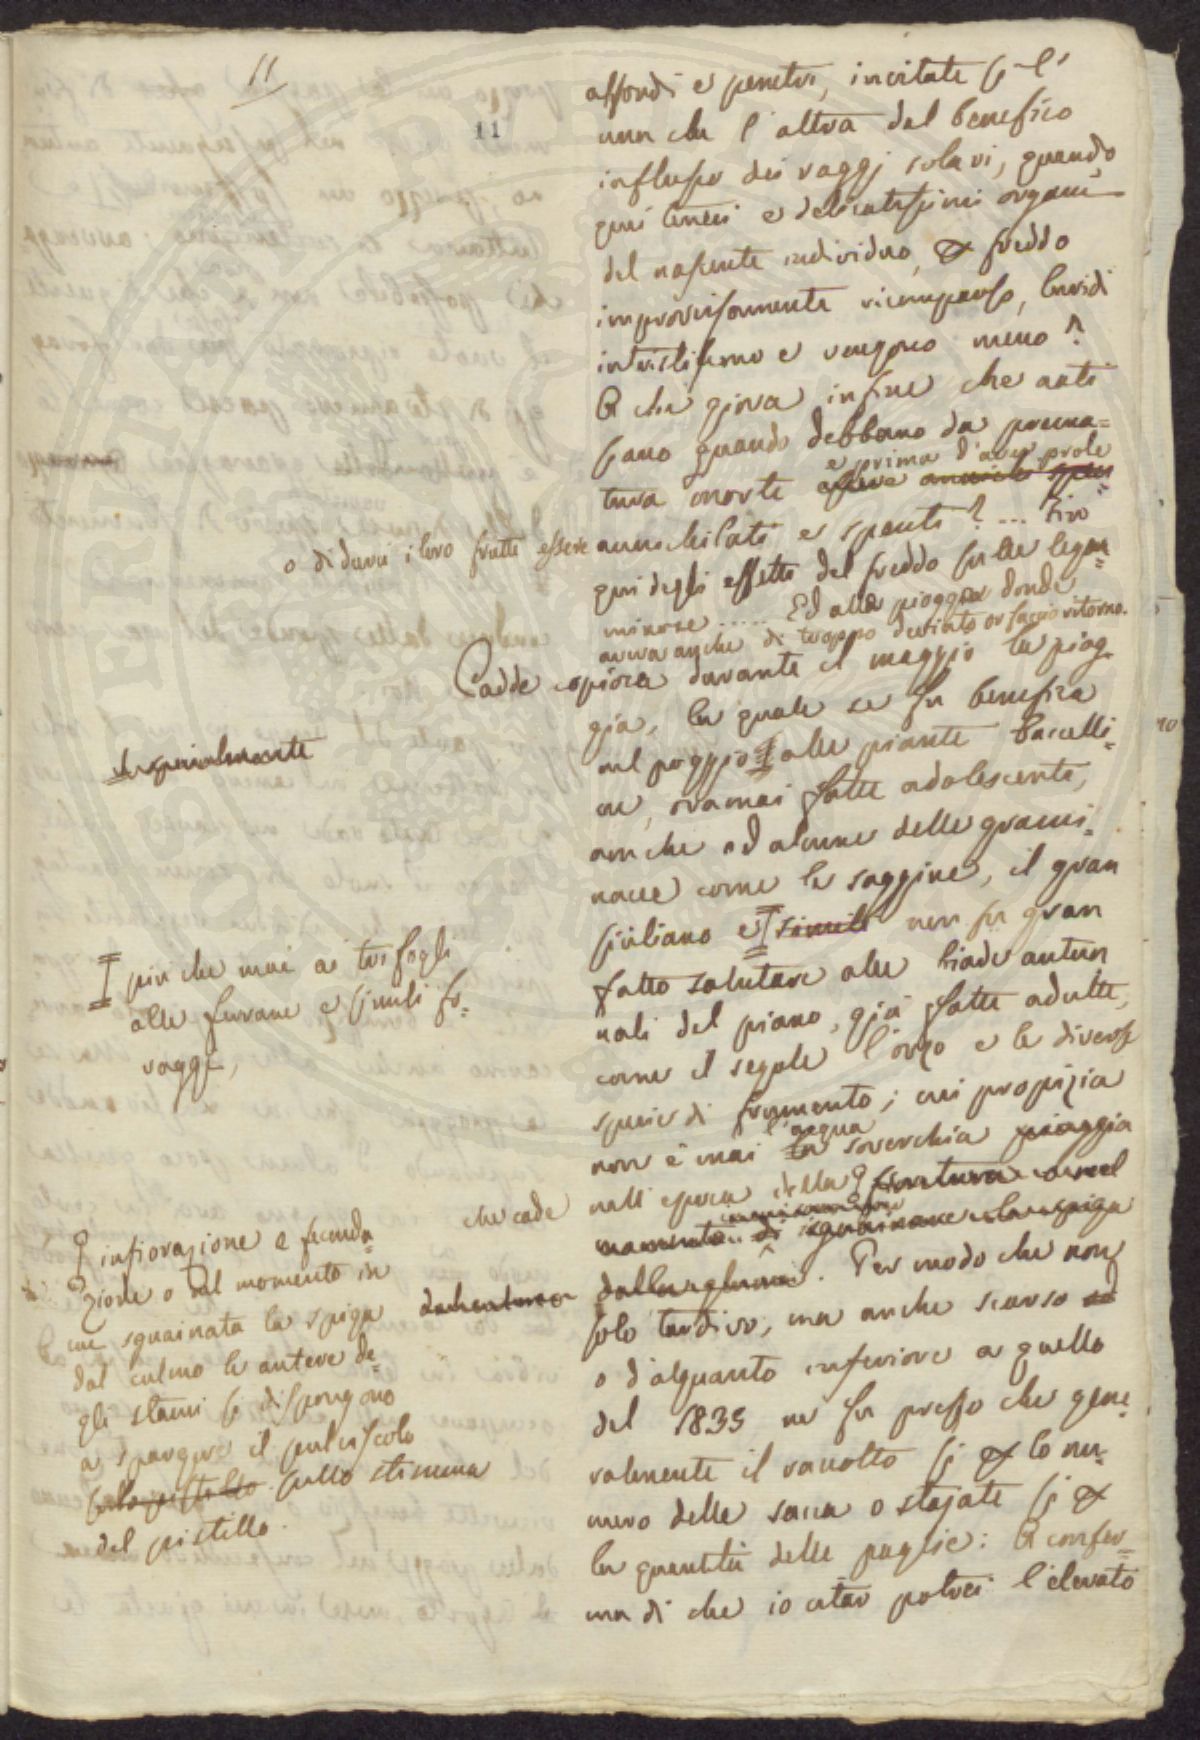 11
11
affondi e penetri, incitate sì l'
una che l'altra dal benefico
influsso dei raggj solari, quando
quei teneri e delicatissimi organi
del nascente individuo, pel freddo
improvvisamente ricomparso, lividi
intristiscono e vengono meno?
A che giova infine che nati
siano quando debbano da prema=
e prima d'aver prole
tura morte essere
o di darci i loro frutti essere annichilati e spenti? ... Fin
qui degli effetti del freddo sulle legu=
minose ..... Ed alla pioggia donde
aveva anche di troppo deviato or faccio ritorno.
Cadde copiosa durante il maggio la piog
gia, la quale se fu benefica
specialmente
nel poggio alle piante baccelli=
ne, oramai fatte adolescenti,
anche ad alcune delle grami=
nacee come la saggina, il gran
siciliano e simili non fu gran
più che mai ai trifogli
alle ferrane e simili fo=
raggi,
fatto salutare alle biade autun
nali del piano, già fatte adulte,
come il segale l'orzo e le diverse
specie di frumento; cui propizia
l'acqua
non è mai la soverchia pioggia
che cade nell'epoca della fioritura o nel
momento di sguainare la spiga
infiorazione e feconda=
zione o dal momento in
cui sguainata la spiga
dal culmo le antere de=
gli stami si dispongono
a spargere il pulviscolo
sullo stimma
del pistillo.
dalla gluma. Per modo che non
solo tardivo, ma anche scarso
o d'alquanto inferiore a quello
del 1835 ne fu presso che gene=
ralmente il raccolto sì pel lo nu=
mero delle sacca o stajate sì pel
la quantità delle paglie: A confer=
ma di che io citar potrei l'elevato